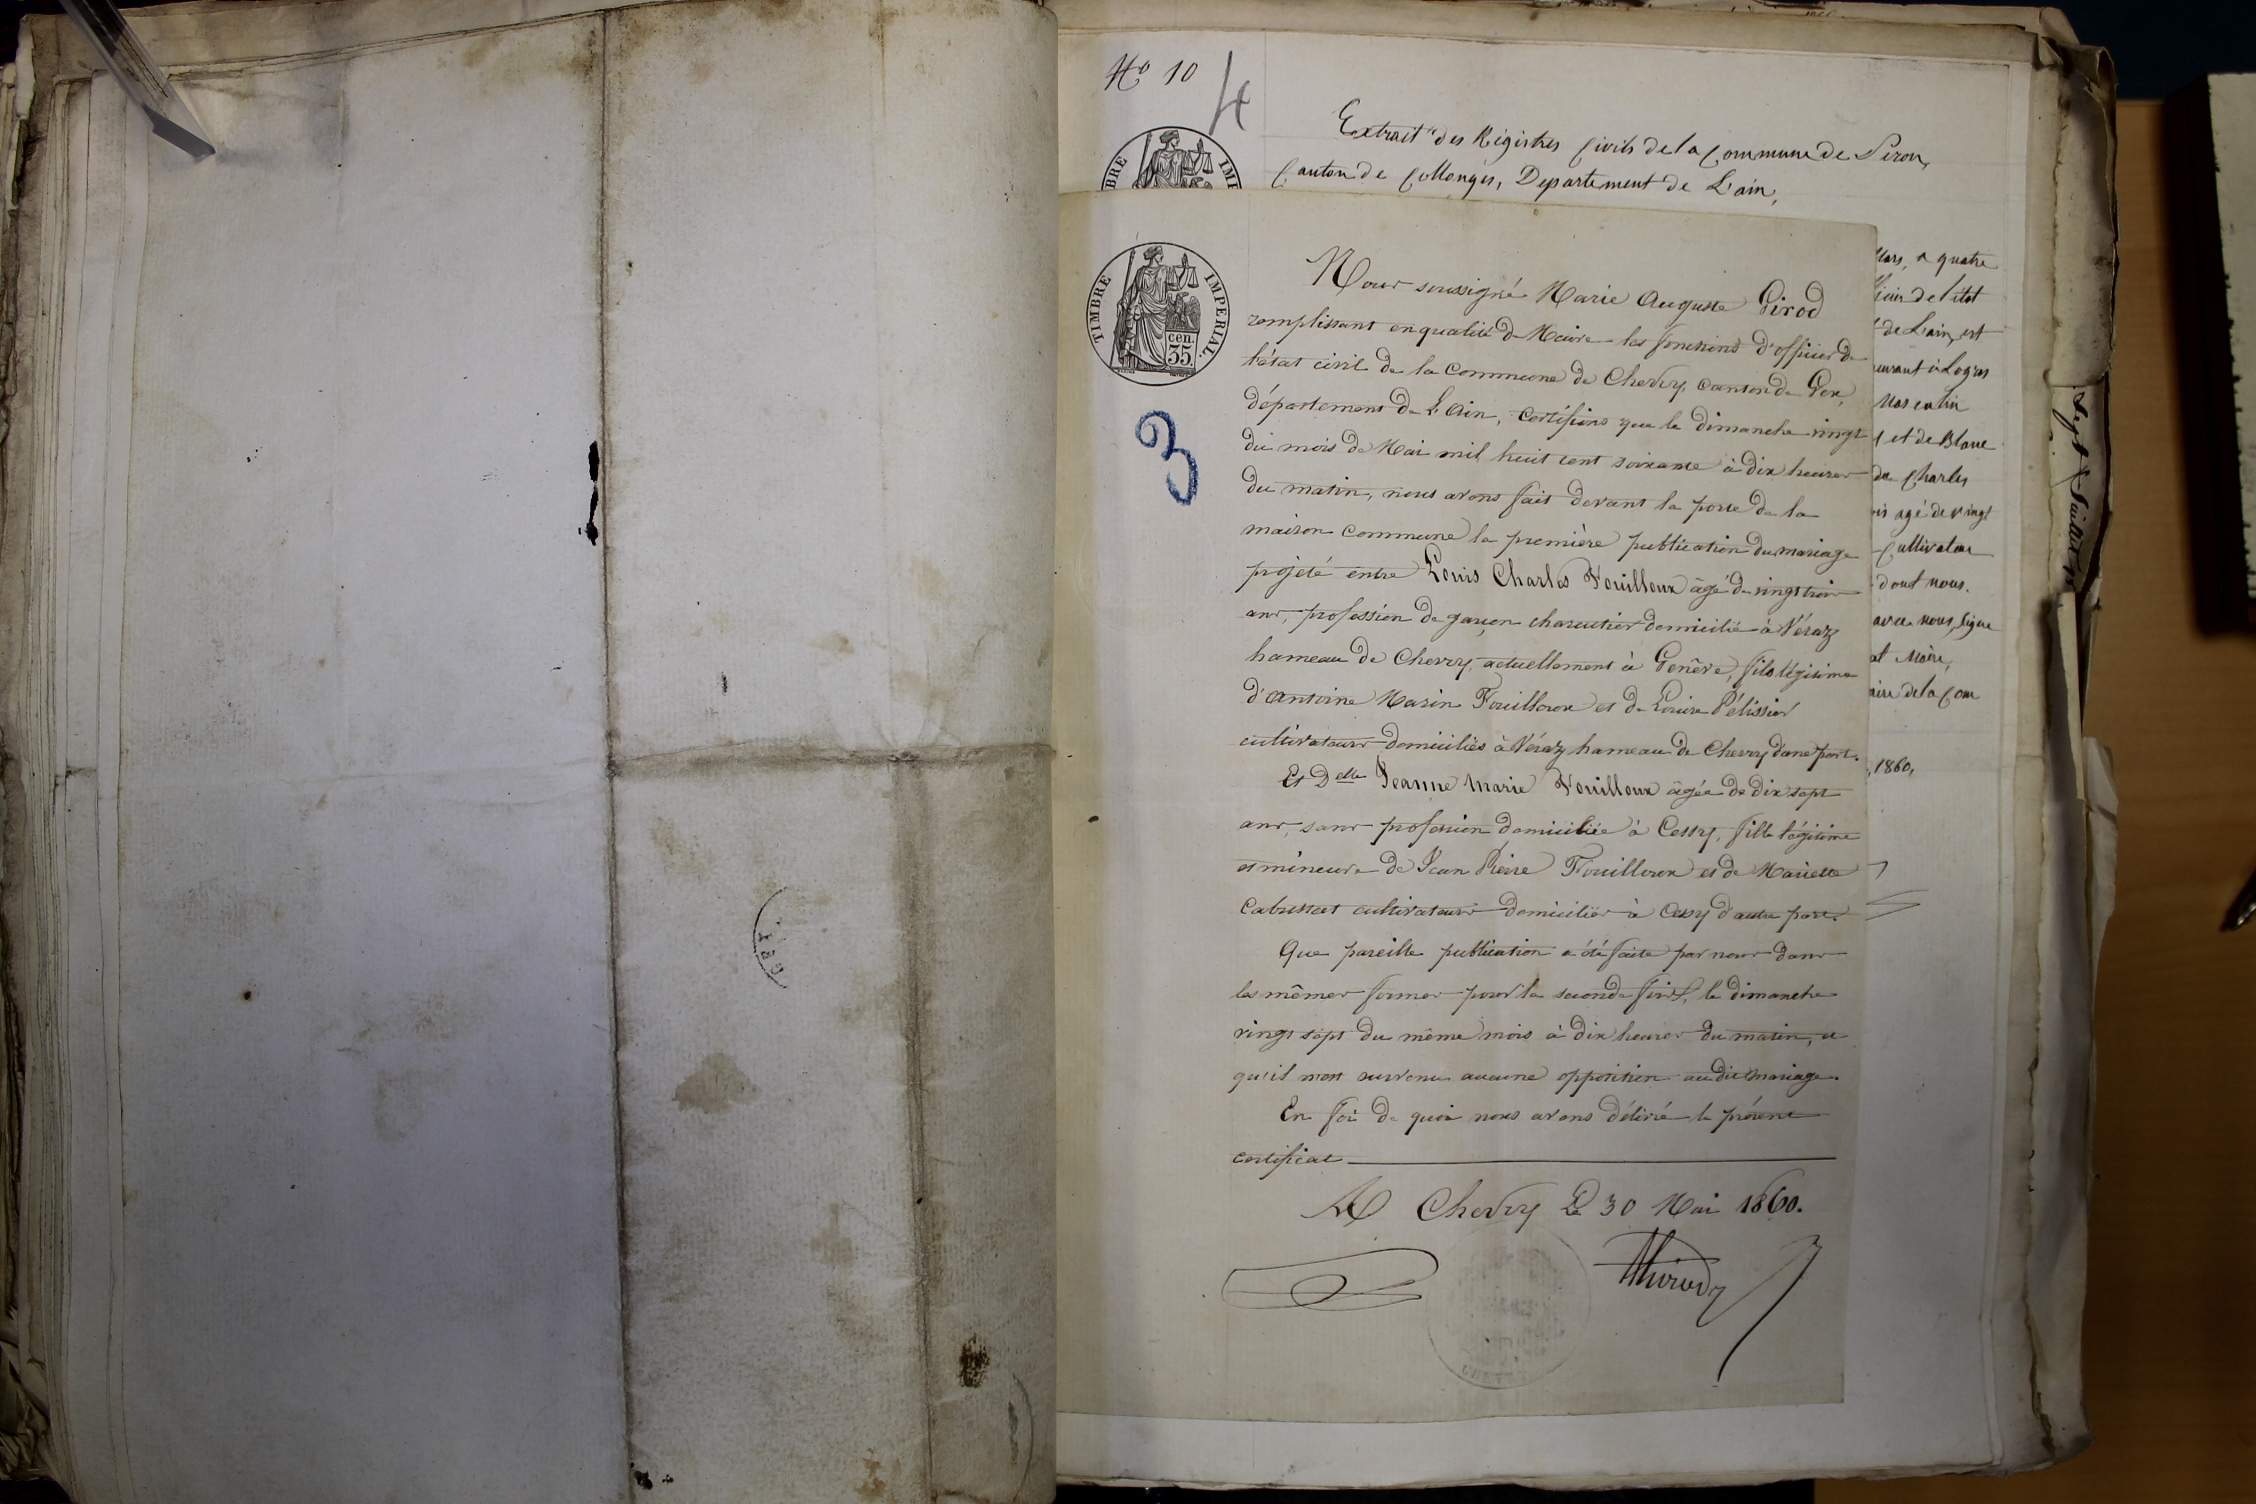 No 10
4
Extrait des Régistres Civils de la Commune de Péron,
Canton de Collonges, Département de L'ain,
TIMBRE IMPÉRIAL.
cen.
35.
3
Nous soussigné Marie Auguste Girod
remplissant en qualité de Maire les fonctions d'officier de
l'état civil de la Commune de Chevry, canton de Gex,
département de L'Ain, certifions que le dimanche vingt
du mois de Mai mil huit cent soixante à dix heures
du matin, nous avons fait devant la porte de la
maison commune la première publication du mariage
projeté entre Louis Charles Fouilloux âgé de vingt trois
ans, profession de garçon charcutier domicilié à Véraz
hameau de Chevry, actuellement à Genêve, fils légitime
d'Antoine Marin Fouilloux et de Louise Pélissier
cultivateurs domiciliés à Véraz hameau de Chevry d'une part.
Et Delle Jeanne Marie Fouilloux âgée de dix sept
ans, sans profession domiciliée à Cessy, fille légitime
et mineure de Jean Pierre Fouilloux et de Mariette
Cabussat cultivateurs domiciliés à Cessy d'autre part.
Que pareille publication a été faite par nous dans
les mêmes formes pour la seconde fois, le dimanche
vingt sept du même mois à dix heures du matin, et
qu'il n'est survenu aucune opposition au dit mariage.
En foi de quoi nous avons délivré le présent
certificat
A Chevry Le 30 Mai 1860.
MGirod
Mars, a quatre
de l'état
de L'ain, est
à Logras
et de Blanc
de Charles
agé de vingt
Cultivateur
dont nous.
avec nous, signe
Maire,
de la Com
1860,